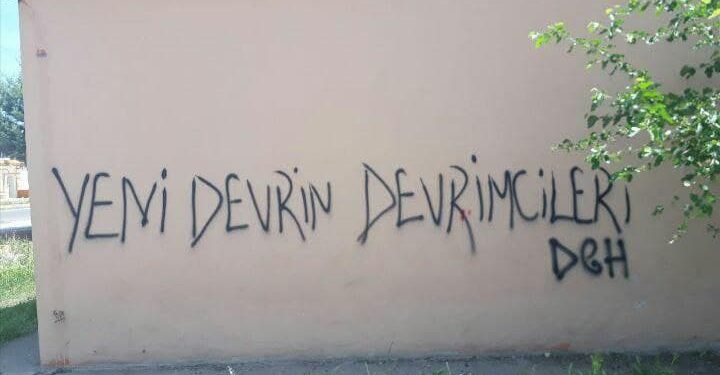 YENİ DEVRİN DEVRİMCİLERİ
DGH